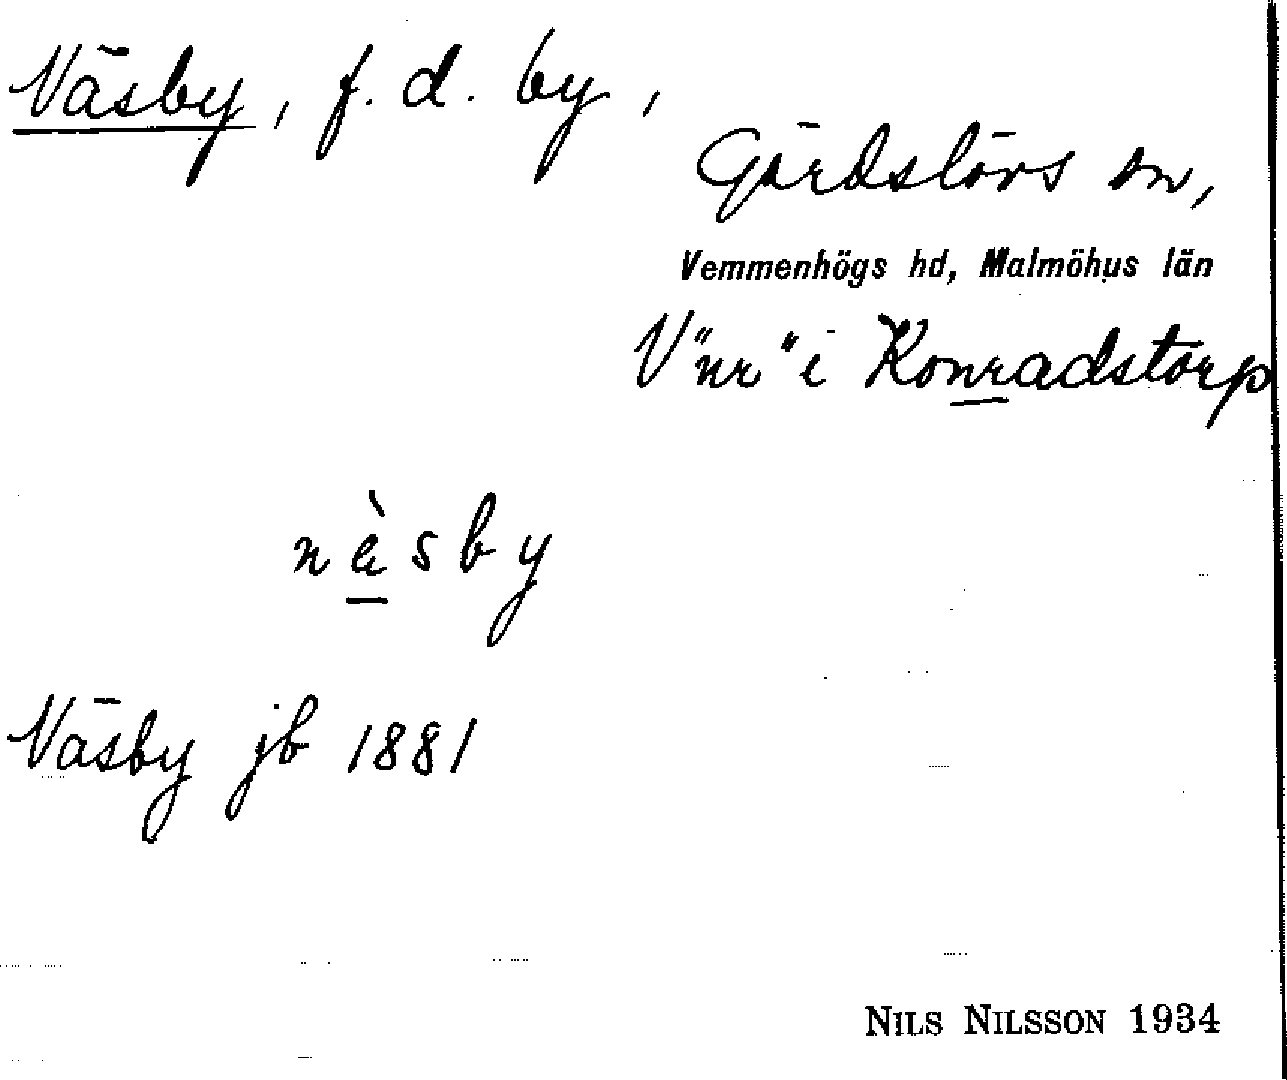 Väsby, f. d. by,
Gärdslövs sn,
Vemmenhögs hd, Malmöhus län
V "nr" i Konradstorp
Väsby jb 1881
NILS NILSSON 1934